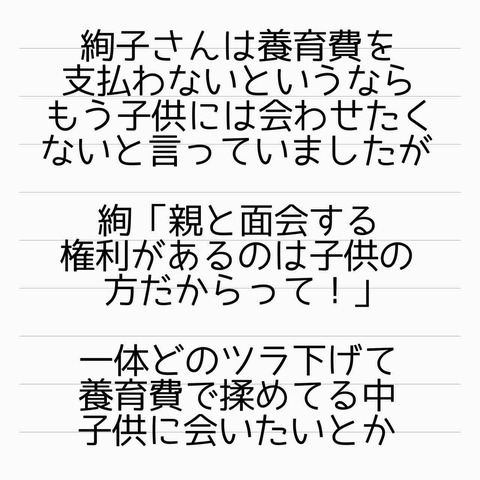 絢子さんは養育費を
支払わないというなら
もう子供には会わせたく
ないと言っていましたが
絢「親と面会する
権利があるのは子供の
方だからって！」
一体どのツラ下げて
養育費で揉めてる中
子供に会いたいとか